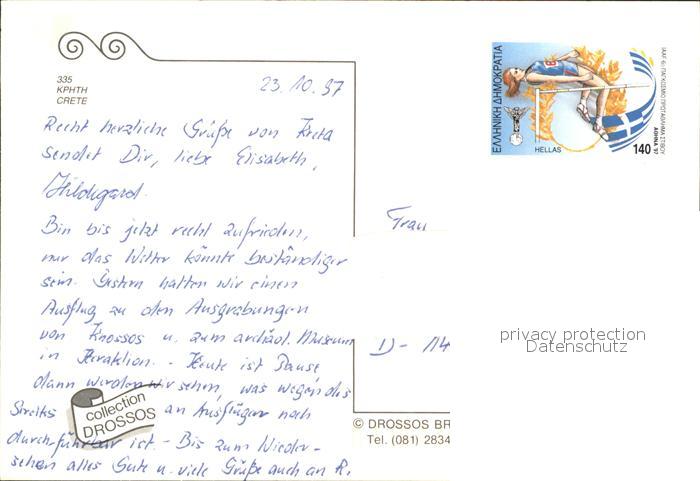 335
ΚΡΗΤΗ
CRETE
23.10.97
Recht herzliche Grüße von Kreta
sendet Dir, liebe Elisabeth,
Hildegard.
Bin bis jetzt recht zufrieden,
nur das Wetter könnte beständiger
sein. Gestern hatten wir einen
Ausflug zu den Ausgrabungen
von Knossos u. zum archäol. Museum
in Heraklion. - Heute ist Pause
dann werden wir sehen, was wegen des
Streiks an Ausflügen noch
durchführbar ist. - Bis zum Wieder-
sehen alles Gute u. viele Grüße auch an R.
collection
DROSSOS
ΕΛΛΗΝΙΚΗ ΔΗΜΟΚΡΑΤΙΑ
HELLAS
140
IAAF 6ο ΠΑΓΚΟΣΜΙΟ ΠΡΩΤΑΘΛΗΜΑ ΣΤΙΒΟΥ
ΑΘΗΝΑ '97
Frau
D- 14
privacy protection
Datenschutz
© DROSSOS BR
Tel. (081) 2834